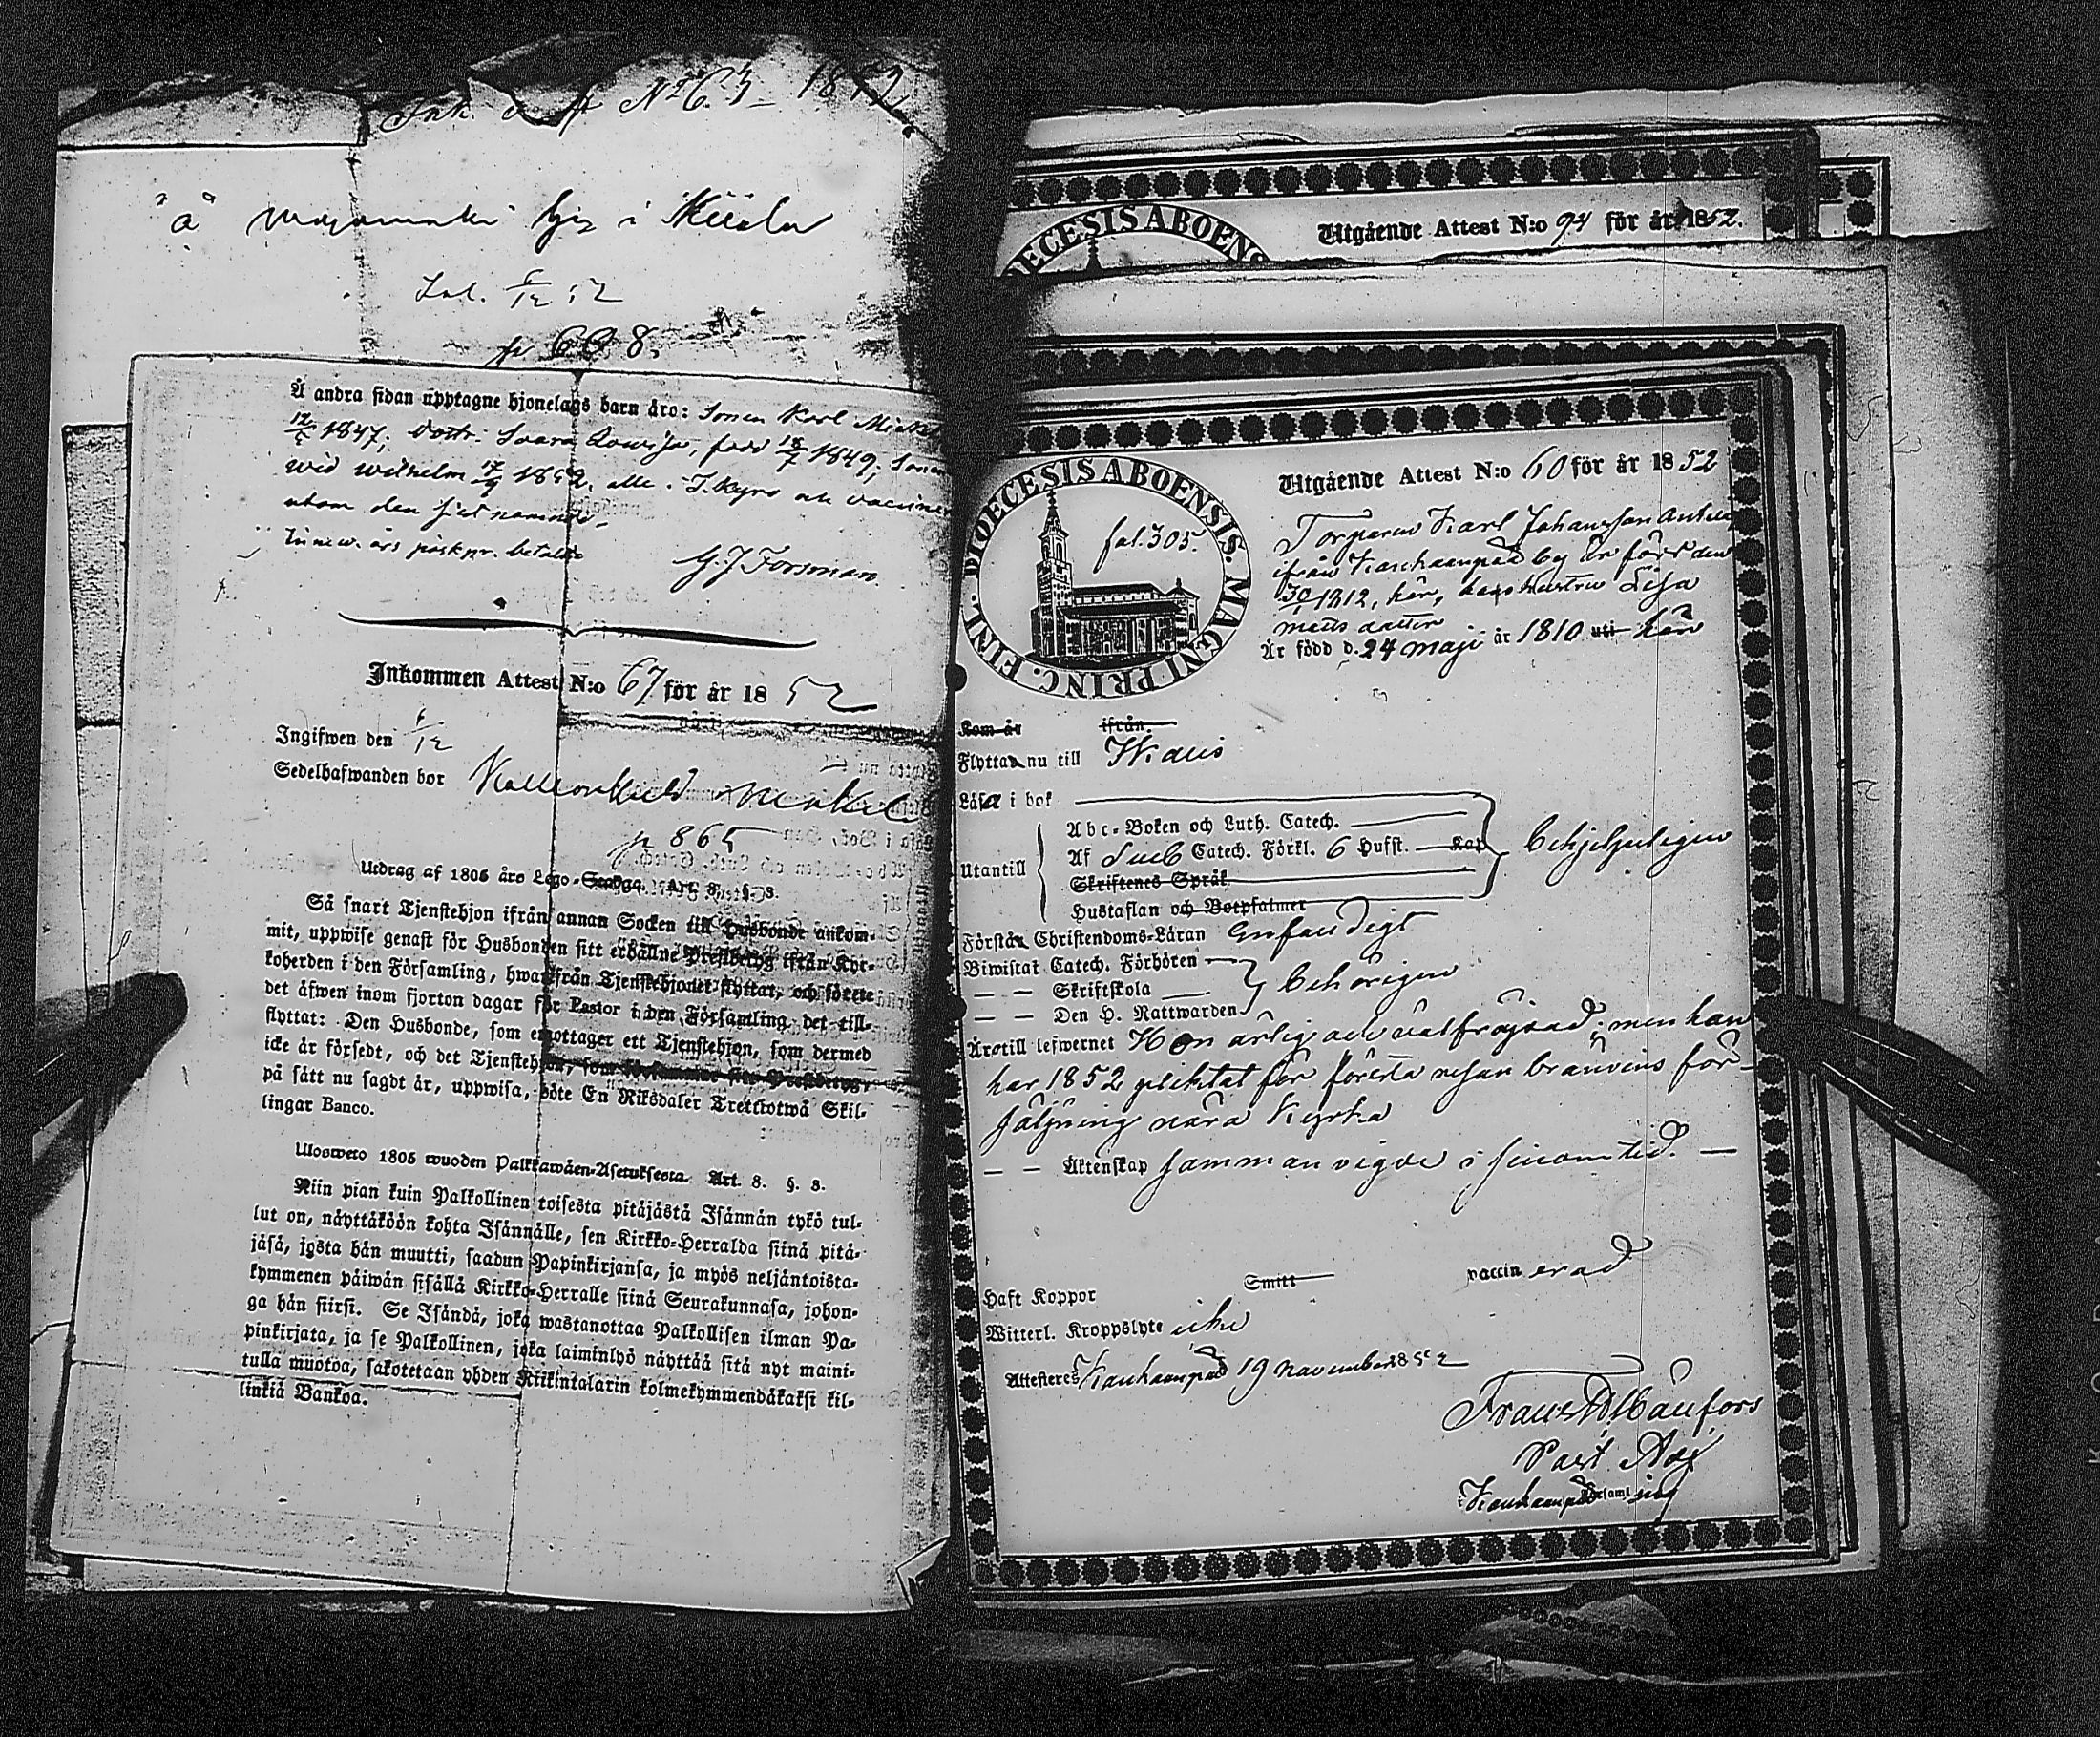 Ink. N:o 63 1852
"å" majamaken hjz i Kiiala
Inl. 6/12 52
p 608.
Å andra sidan upptagne hjonelags barn äro: Sonen Karl Mickel
17/5 1847; dottr. Saara Lovisa, född 18/7 1849; Sonen
wid wilhelm 17/9 1852, alla i S.Kyro och vaccine
utom den sist nämnde.
Innew. års påskpr. betalde
G. J Forsman
Inkommen Attest N:o 67 för år 1852
Ingifwen den 6/12
Sedelhafwanden bor
p 865
Utdrag af 1805 års Lego-Stadga. Art. 8. §. 8.
Så snart Tjenstehjon ifrån annan Socken till Husbonde ankom-
mit, uppwise genast för Husbonden sitt erhållne Prestbetyg ifrån Kyr-
koherden i den Församling, hwarifrån Tjenstehjonet flyttat, och förete
det äfwen inom fjorton dagar för Pastor i den Församling det till-
flyttat: Den Husbonde, som emottager ett Tjenstehjon, som dermed
icke är försedt, och det Tjenstehjon, som försummar sitt Prestbetyg,
på sätt nu sagdt är, uppwisa, böte En Riksdaler Trettiotwå Skil-
lingar Banco.
Ulosweto 1805 wuoden Palkkawäen-Asetuksesta. Art. 8. §. 8.
Niin pian kuin Palkollinen toisesta pitäjästä Isännän tykö tul-
lut on, näyttäköön kohta Isännälle, sen Kirkko-Herralda siinä pitä-
jäsä, josta hän muutti, saadun Papinkirjansa, ja myös neljäntoista-
kymmenen päiwän sisällä Kirkko-Herralle siinä Seurakunnasa, johon-
ga hän siirsi. Se Isändä, joka wastanottaa Palkollisen ilman Pa-
pinkirjata, ja se Palkollinen, joka laiminlyö näyttää sitä nyt maini-
tulla muotoa, sakotetaan yhden Riikintalarin kolmekymmendäkaksi kil-
linkiä Bankoa.
DIOECESIS ABOENS
Utgående Attest N:o 94 för år 1852.
DIOECESIS ABOENSIS. MAGNI PRINC. FINL.
fol. 305.
Utgående Attest N:o 60 för år 1852
Torparen Karl Johansson Antila
ifrån Kankaanpää by är född den
30/1 1812, här, hans hustru Lisa
Matts dotter
Är född d. 24 maji år 1810 uti här
Kom år ifrån
Flyttar nu till Ikalis
Läsa i bok
Utantill
Abc-Boken och Luth. Catech.
Af Sveb Catech. Förkl. 6 Hufst. Kap
Skriftenes Språk
Hustaflan och Botpsalmer
behjelpeligen
Förstår Christendoms-Läran enfaldigt
Biwistat Catech. Förhören
— — Skriftskola
— — Den H. Nattwarden
behörigen
Äro till lefwernet Hon ärlig och välfräjdad; men han
har 1852 pliktat för första resan bränvins för-
säljning nära Kyrka
— — Äktenskap samman vigde i sinom tid. —
Haft Koppor Smitt vaccinerad
Witterl. Kroppslyte icke
Attesteres Kankaanpää 19 november 1852
Frans
Past. Adj
i Kankaanpää Församling